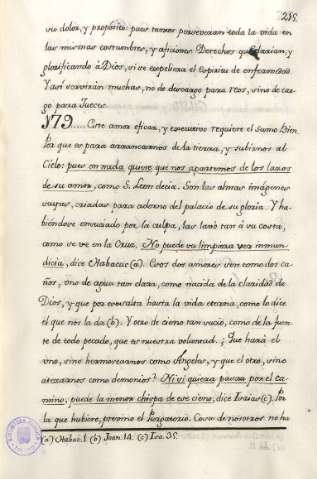 215.
vio dolor, y proposito: pues tantos perseveran toda la vida en
las mismas costumbres, y aficiones. Derechos que dexarian, y
glorificando à Dios, si se expeliera el espiritu de
Y asi servirán muchas, no de descargo para reos, sino de car-
go para Jueces.
179..... Este amor eficaz, y executivo requiere el Sumo Bien,
Por que es para arrancarnos de la tierra, y subirnos al
Cielo: pues en nada quiere que nos apartemos de los lazos
de su amor, como S. Leon decia. Son las almas imágenes
suyas, criadas para adorno del palacio de su gloria. Y ha-
biéndose ensuciado por la culpa, las lavó tan à su costa,
como se ve en la Cruz. No puede ver limpieza
dicia, dice Habacuc (a). Estos dos amores son como dos ca-
ños, uno de agua tan clara, como nacida de la claridad de
Dios, y que por resalta hasta la vida eterna, como lo dice
el que nos la da (b). Y otro de cieno tan sucio, como de la fuen-
te de todo pecado, que es nuestra voluntad. ¿Que hará el
uno, sino hermosearnos como Angeles, y que el otro, sino
afearnos como demonios? Ni si quiera pasará por el ca-
mino, puede la menor chispa de ese cieno, dice Isaias (c). Por
la que hubiere, previno el Purgatorio. Cosa de nosotros no ha
(a) Habac. 1. (b) Joan. 14. (c) Isa. 35.